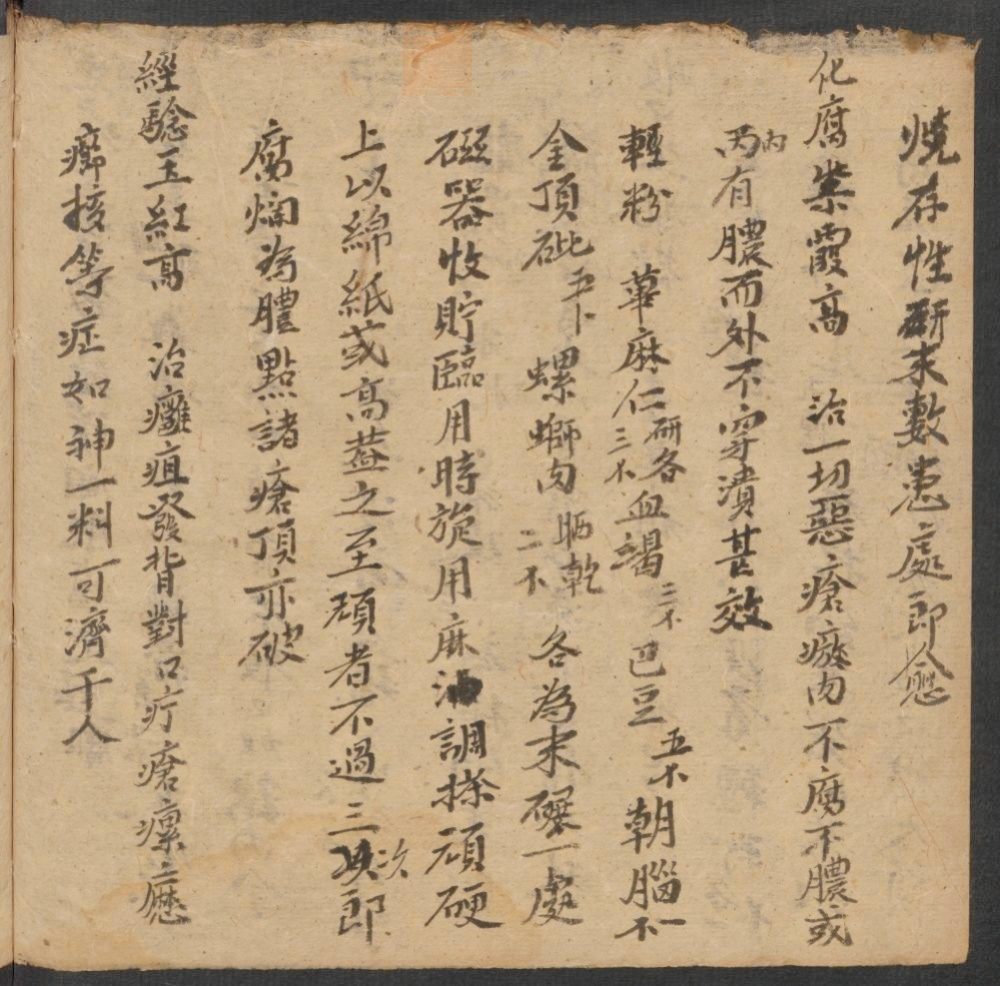 燒存性研末敷患處即愈
化腐紫霞膏 治一切惡瘡瘀肉不腐不膿或
內有膿而外不穿潰甚效
輕粉 萆麻仁研各三不 血竭三不 巴豆五不 朝腦一不
金頂砒五卜 螺螄肉晒乾二不 各為末碾一處
磁器收貯臨用時旋用麻油調搽頑硬
上以綿紙或膏蓋之至頑者不過三次即
腐爛為膿點諸瘡頂亦破
經驗玉紅膏 治癰疽發背對口疔瘡瘰癧
癤接等症如神一料可濟千人